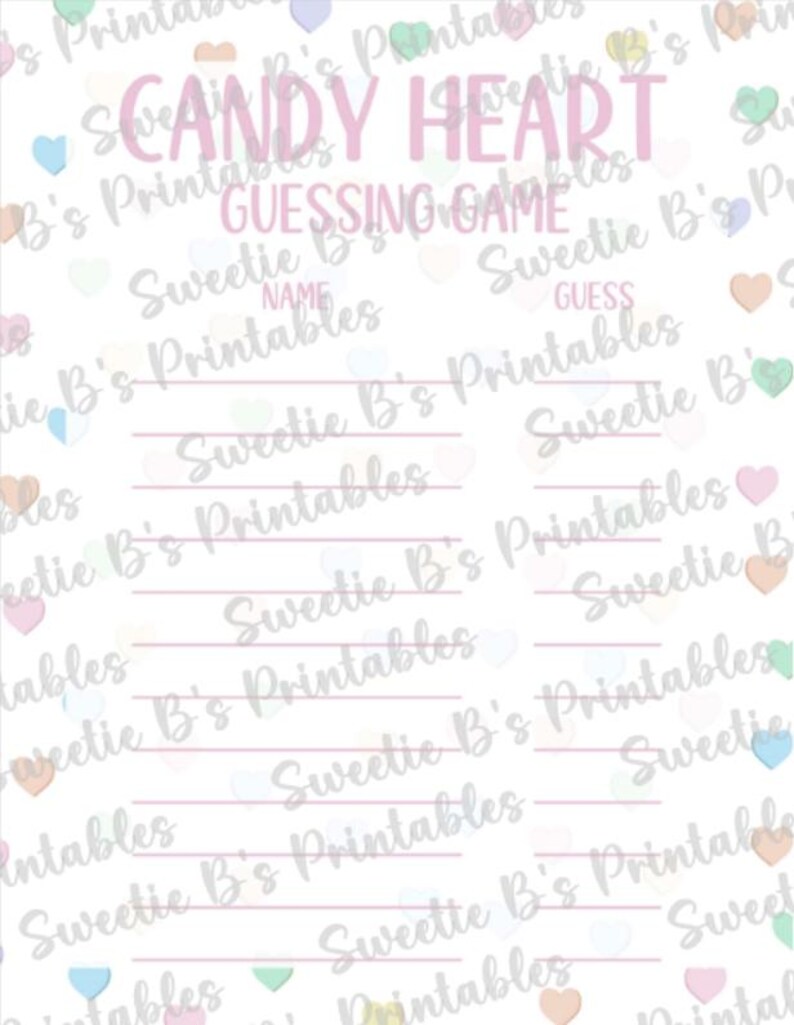 CANDY HEART
GUESSING GAME
NAME GUESS
Sweetie B's Printables
Sweetie B's Printables
Sweetie B's Printables
Sweetie B's Printables
Sweetie B's Printables
Sweetie B's Printables
Sweetie B's Printables
Sweetie B's Printables